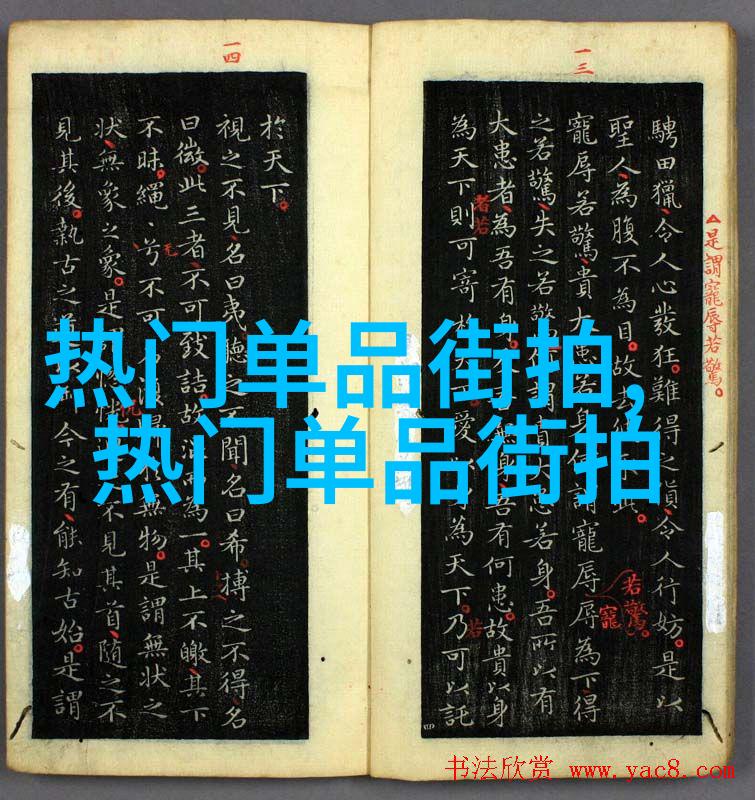 一三
△是謂寵辱若驚。
騁田獵令人心發狂。難得之貨令人行妨。是以
聖人為腹不為目。故去此。
寵辱若驚貴大患若身何謂寵辱辱為下得
之若驚失之若驚何謂貴大患若身。吾所以有
大患者為吾有身。無身吾有何患。故貴以身
為天下則可寄於天下。愛為天下。乃可以託
者若
若驚。
寵
若
一四
於天下。
視之不見名曰夷聽之不聞名曰希搏之不得名
曰微此三者不可致詰故混而為一。其上不皦其下
不昧。繩〻兮不可名復歸無物。是謂無狀之
狀無象之象。是不見其首隨之不
見其後。執古之道今之有能知古始。是謂
无
热门单品街拍,
热门单品街拍
书法欣赏 www.yac8.com